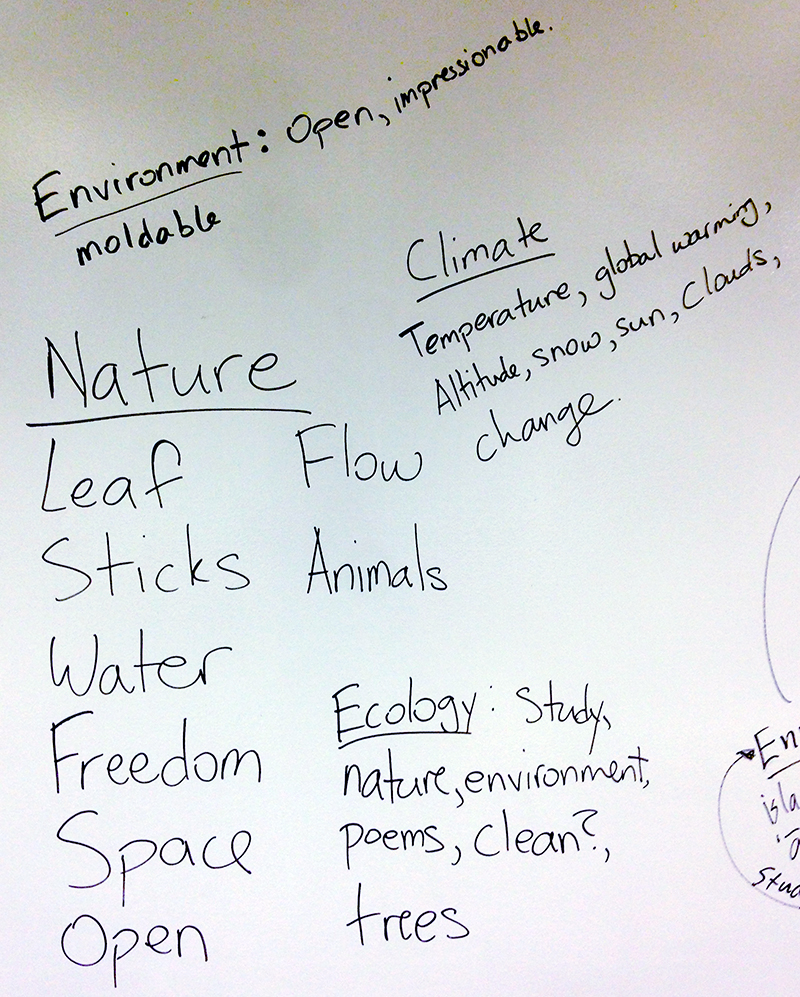 Environment: Open, impressionable.
moldable
Climate
Temperature, global warming,
Altitude, snow, sun, Clouds,
change.
Nature
Leaf Flow
Sticks Animals
Water
Freedom
Space
Open
Ecology: Study,
nature, environment,
poems, clean?,
trees